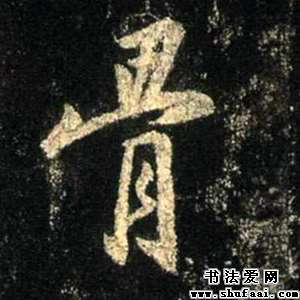 骨
书法爱网
www.shufaai.com